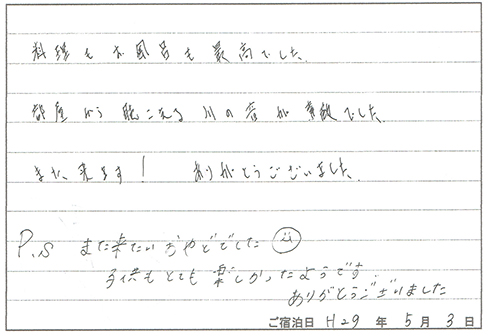 料理もお風呂も最高でした。
部屋から聴こえる川の音が素敵でした。
また、来ます! ありがとうございました。
P.S また来たいおやどでした
子供もとても楽しかったようです。
ありがとうございました
ご宿泊日 H29 年 5 月 3 日